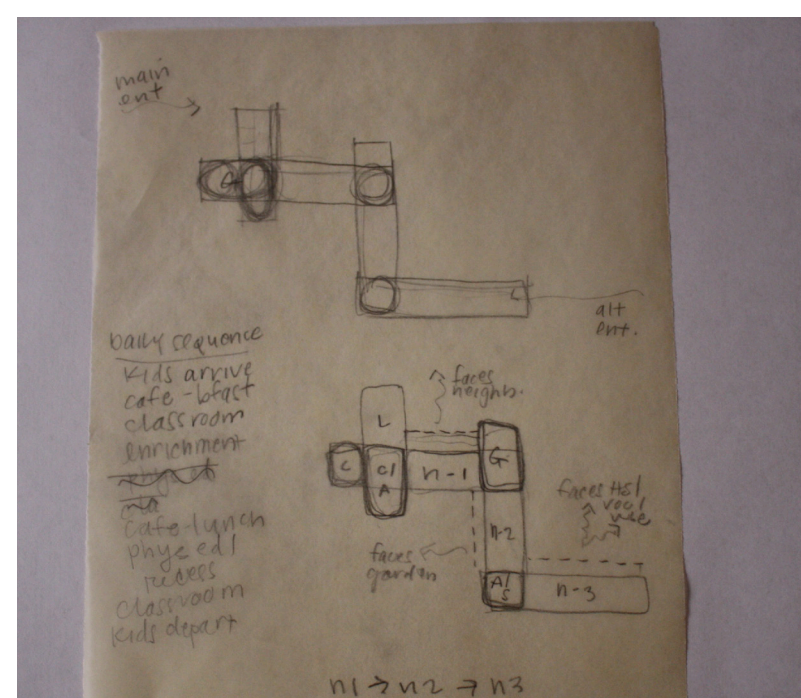 main
ent
C
L
alt
ent.
Daily sequence
Kids arrive
cafe - bfast
classroom
enrichment
cafe-lunch
phys ed/
recess
classroom
Kids depart
faces
neighb.
L
C
C/
A
n-1
G
n-2
faces
garden
faces HS/
A/
S
n-3
n1 → n2 → n3